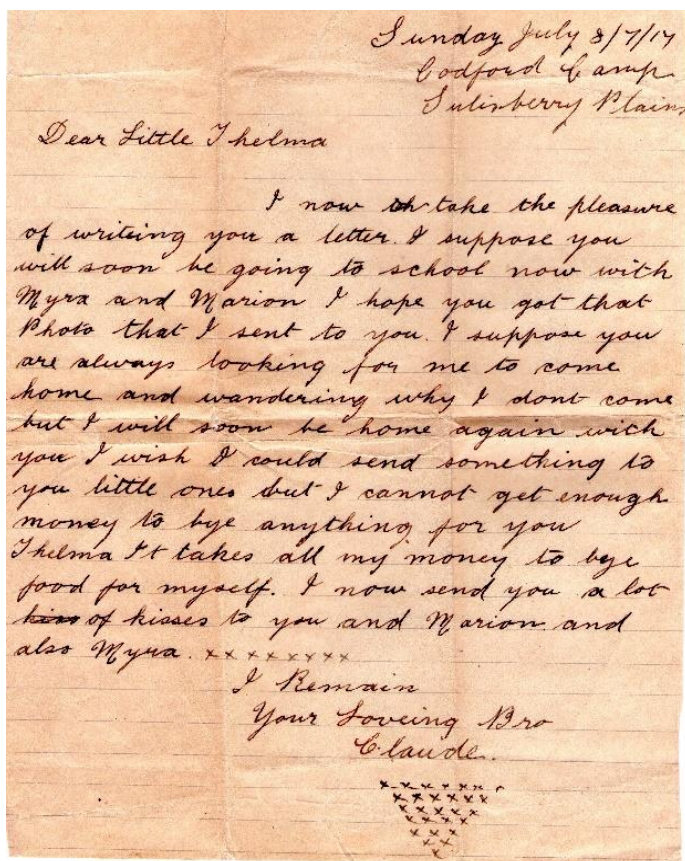 Sunday July 8/7/17
Codford Camp
Sulinberry Plains
Dear Little Thelma
I now take the pleasure
of writeing you a letter. I suppose you
will soon be going to school now with
Myra and Marion I hope you got that
Photo that I sent to you. I suppose you
are always looking for me to come
home and wandering why I dont come
but I will soon be home again with
you I wish I could send something to
you little ones but I cannot get enough
money to bye anything for you
Thelma It takes all my money to bye
food for myself. I now send you a lot
kiss of kisses to you and Marion and
also Myra. x x x x x x x x
I Remain
Your Loveing Bro
Claude.
x x x x x x x
x x x x x x
x x x x x
x x x x
x x x
x x
x